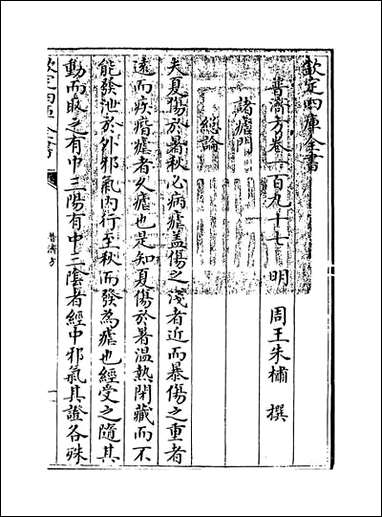 欽定四庫全書
普濟方卷一百九十七 明 周王朱橚 撰
諸瘧門
總論
夫夏傷於暑秋必病瘧盖傷之淺者近而暴傷之重者
遠而疾痎瘧者久瘧也是知夏傷於暑溫熱閉藏而不
能發泄於外邪氣内行至秋而發為瘧也經受之隨其
動而取之有中三陽有中三陰者經中邪氣其證各殊
欽定四庫全書
普濟方
一